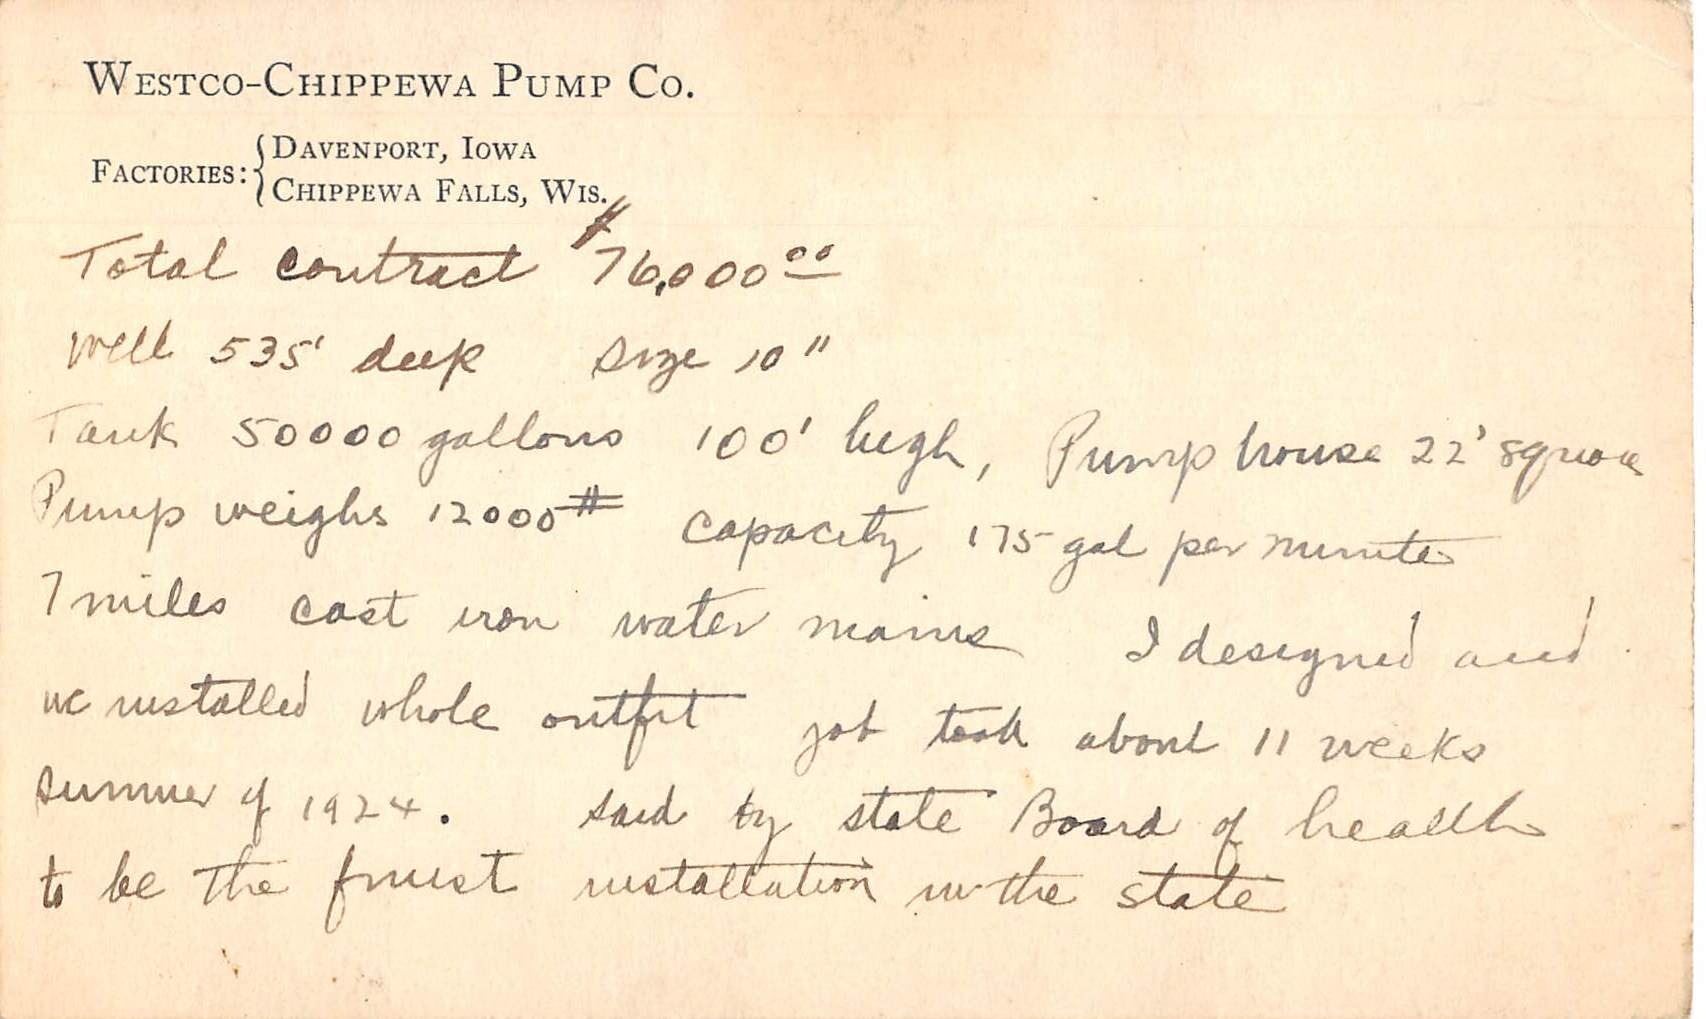 WESTCO-CHIPPEWA PUMP CO.
FACTORIES: { DAVENPORT, IOWA
CHIPPEWA FALLS, WIS.
Total contract $76,000.00
Well 535' deep size 10"
Tank 50000 gallons 100' high, Pump house 22' square
Pump weighs 12000# capacity 175 gal per minute
7 miles cast iron water mains I designed and
we installed whole outfit job took about 11 weeks
summer of 1924. said by state Board of health
to be the finest installation in the state